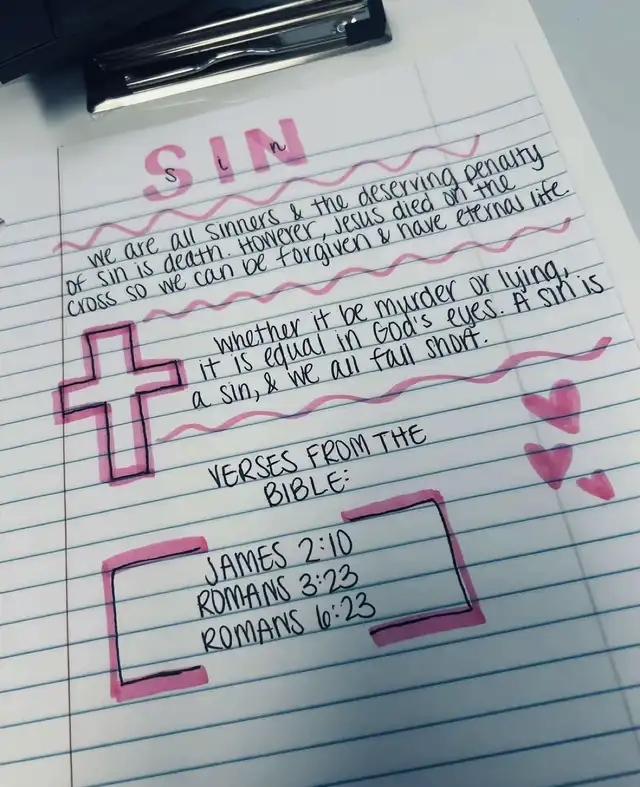 SIN
sin
we are all sinners & the deserving penalty
of sin is death. However, Jesus died on the
cross so we can be forgiven & have eternal life
whether it be murder or lying,
it is equal in God's eyes. A sin is
a sin, & we all fall short.
VERSES FROM THE
BIBLE:
JAMES 2:10
ROMANS 3:23
ROMANS 6:23